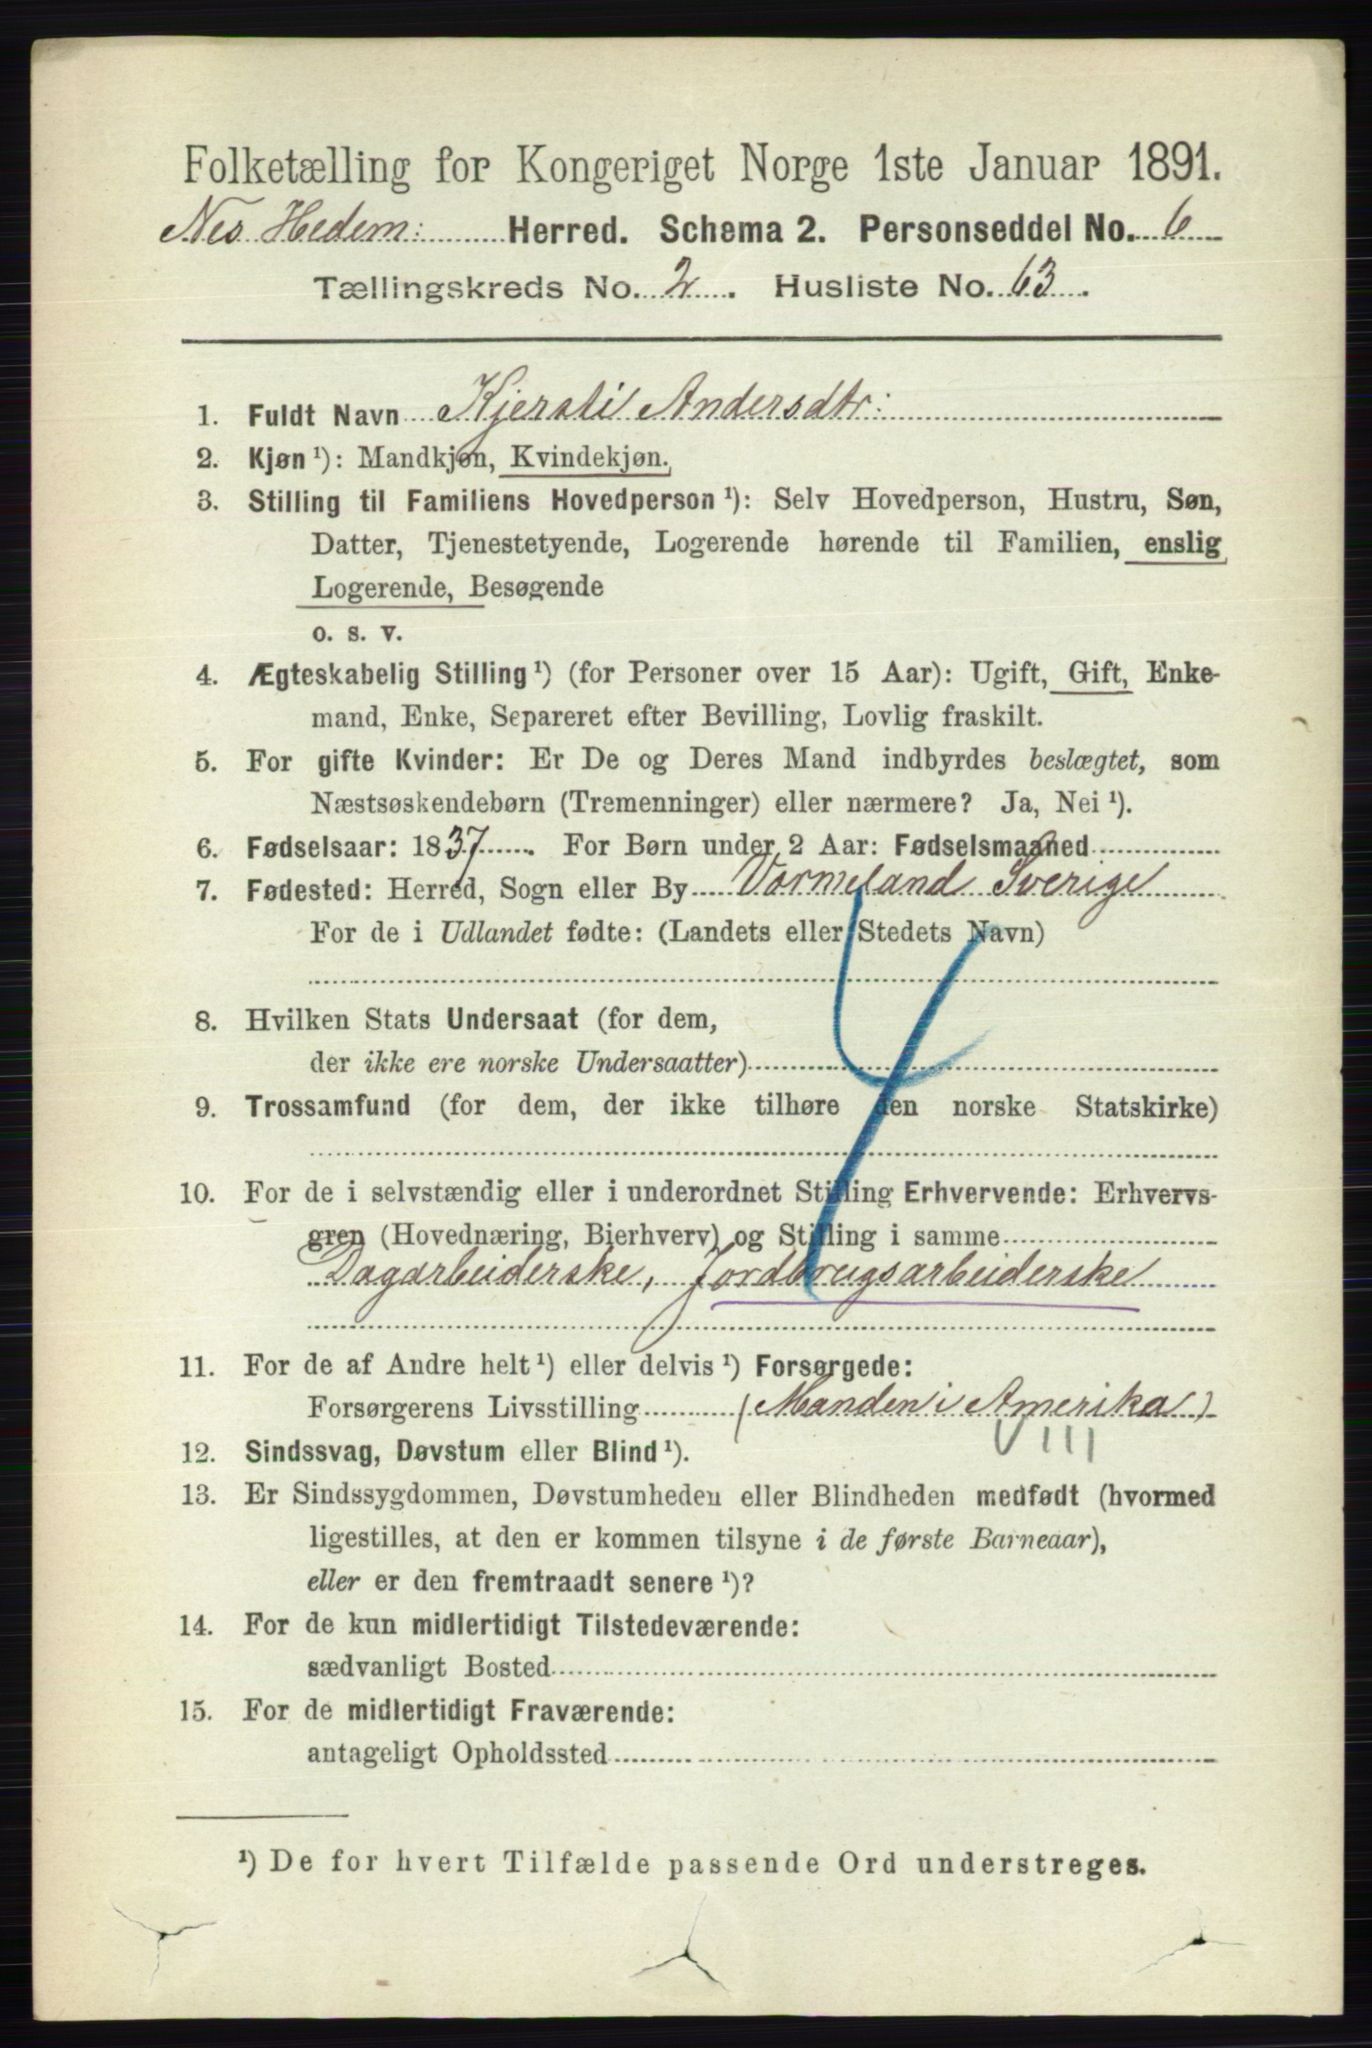 Folketælling for Kongeriget Norge 1ste Januar 1891.
Nes Hedem: Herred. Schema 2. Personseddel No. 6
Tællingskreds No. 2. Husliste No. 63.
1. Fuldt Navn Kjersti Andersdtr:
2. Kjøn¹): Mandkjøn, Kvindekjøn.
3. Stilling til Familiens Hovedperson¹): Selv Hovedperson, Hustru, Søn,
Datter, Tjenestetyende, Logerende hørende til Familien, enslig
Logerende, Besøgende
o. s. v.
4. Ægteskabelig Stilling¹) (for Personer over 15 Aar): Ugift, Gift, Enke-
mand, Enke, Separeret efter Bevilling, Lovlig fraskilt.
5. For gifte Kvinder: Er De og Deres Mand indbyrdes beslægtet, som
Næstsøskendebørn (Tremenninger) eller nærmere? Ja, Nei¹).
6. Fødselsaar: 1837. For Børn under 2 Aar: Fødselsmaaned
7. Fødested: Herred, Sogn eller By Vormeland Sverige
For de i Udlandet fødte: (Landets eller Stedets Navn)
8. Hvilken Stats Undersaat (for dem,
der ikke ere norske Undersaatter)
9. Trossamfund (for dem, der ikke tilhøre den norske Statskirke)
10. For de i selvstændig eller i underordnet Stilling Erhvervende: Erhvervs-
gren (Hovednæring, Bierhverv) og Stilling i samme
Dagarbeiderske, Jordbrugsarbeiderske
11. For de af Andre helt¹) eller delvis¹) Forsørgede:
Forsørgerens Livsstilling (Manden i Amerika)
VIII
12. Sindssvag, Døvstum eller Blind¹).
13. Er Sindssygdommen, Døvstumheden eller Blindheden medfødt (hvormed
ligestilles, at den er kommen tilsyne i de første Barneaar),
eller er den fremtraadt senere¹)?
14. For de kun midlertidigt Tilstedeværende:
sædvanligt Bosted
15. For de midlertidigt Fraværende:
antageligt Opholdssted
¹) De for hvert Tilfælde passende Ord understreges.